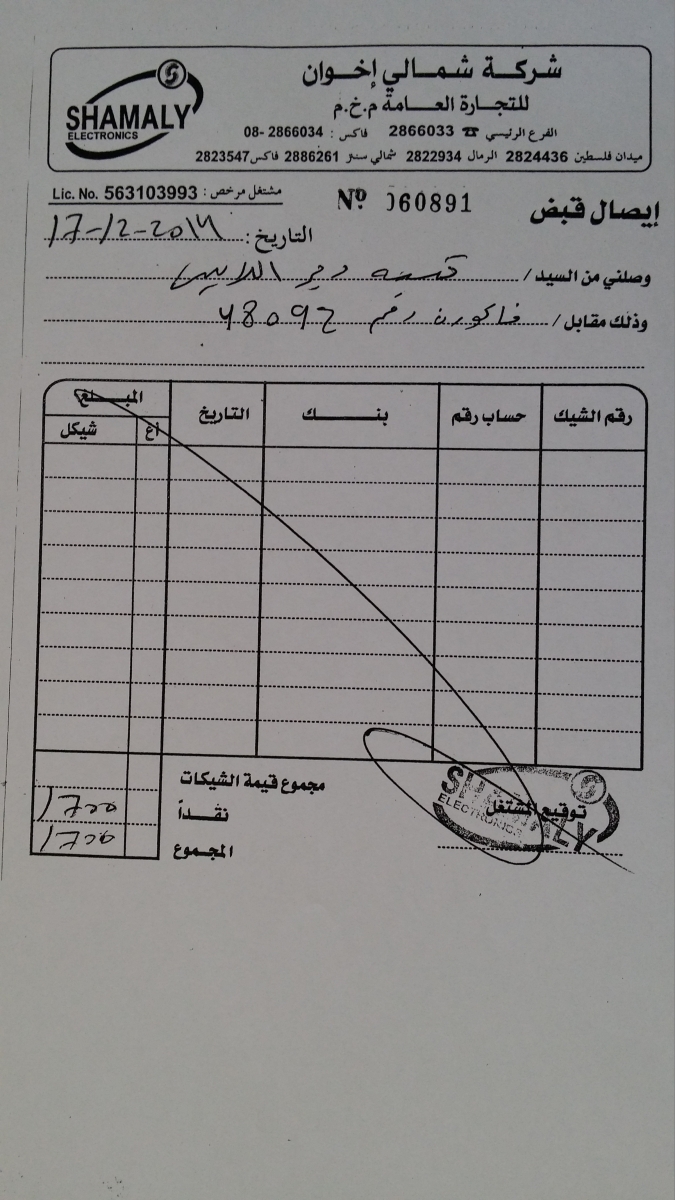 شركة شمالي إخوان
للتجارة العامة م.خ.م
SHAMALY
ELECTRONICS
الفرع الرئيسي ☎ 2866033 فاكس : 2866034 -08
ميدان فلسطين 2824436 الرمال 2822934 شمالي سنتر 2886261 فاكس 2823547
Lic. No. 563103993 : مشتغل مرخص
إيصال قبض
Nº 060891
التاريخ : 17-12-2014
وصلني من السيد /
وذلك مقابل / فاكورة رقم 48092
رقم الشيك حساب رقم بنك التاريخ المبلغ
اغ شيكل
مجموع قيمة الشيكات
نقداً 1700
المجموع 1700
توقيع المشتغل
SHAMALY
ELECTRONICS